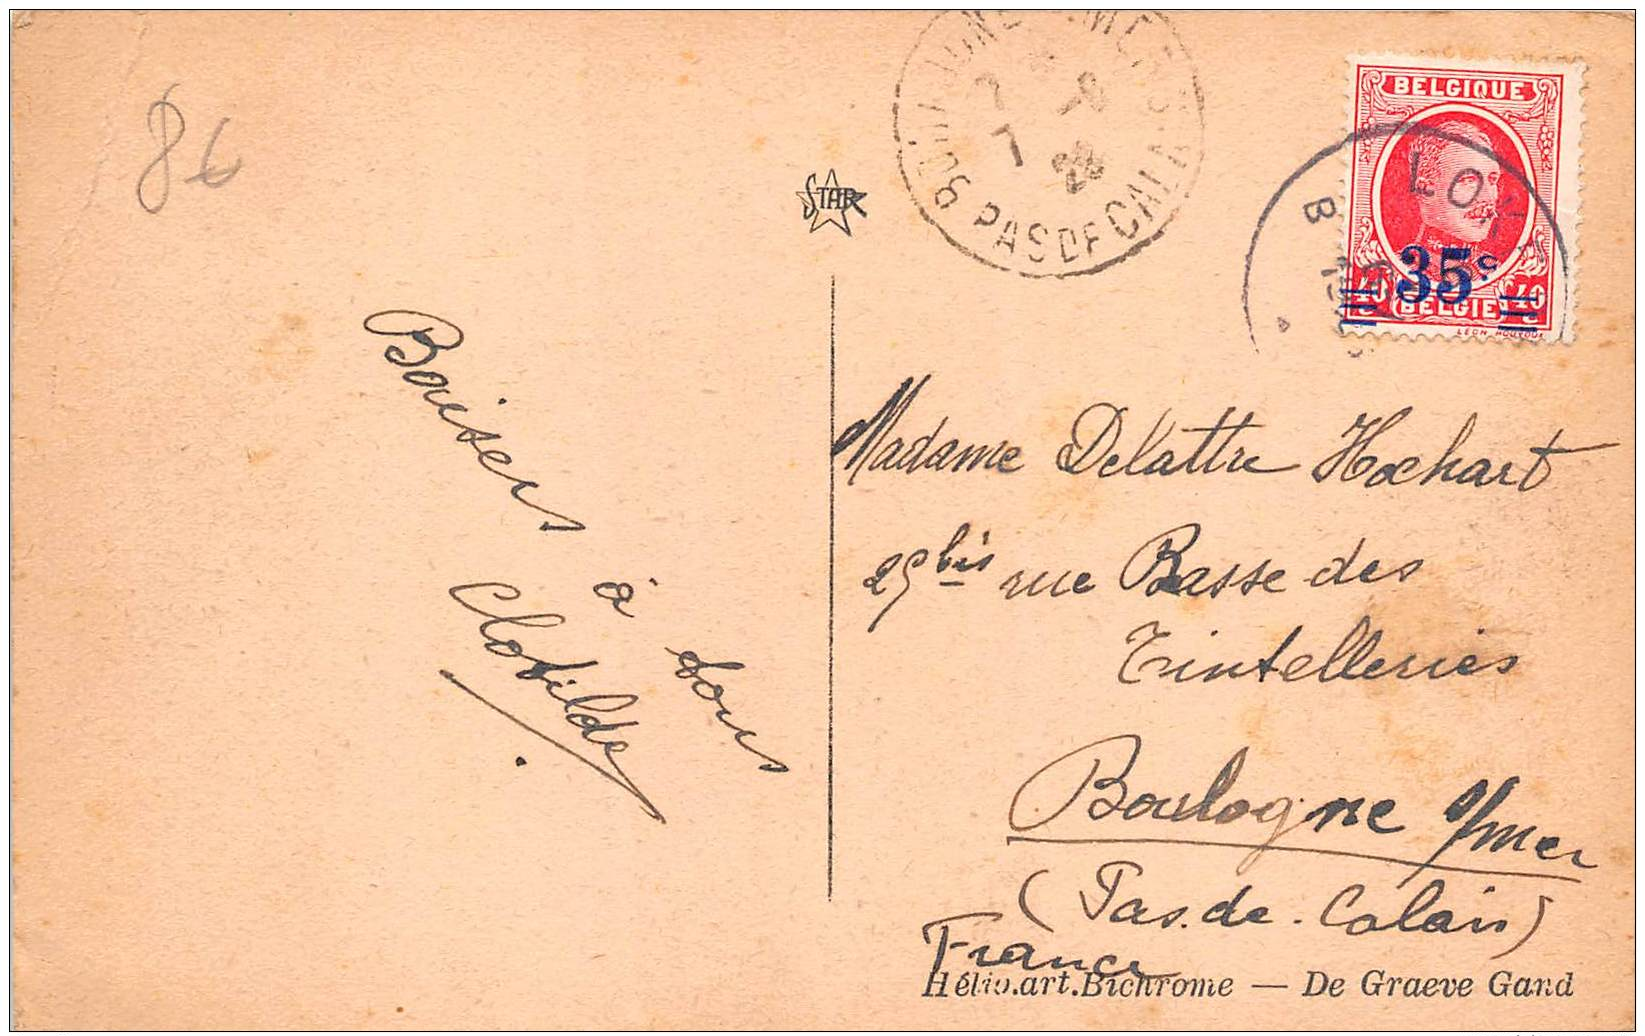 86
STAR
PAS DE CALAIS
BELGIQUE
35c
40 BELGIË 40
B
Baisers
à
tous
Clotilde
Madame Delattre Hochart
29 bis rue Basse des
Tintelleries
Boulogne s/mer
(Pas.de.Calais)
France
Hélio.art.Bichrome — De Graeve Gand